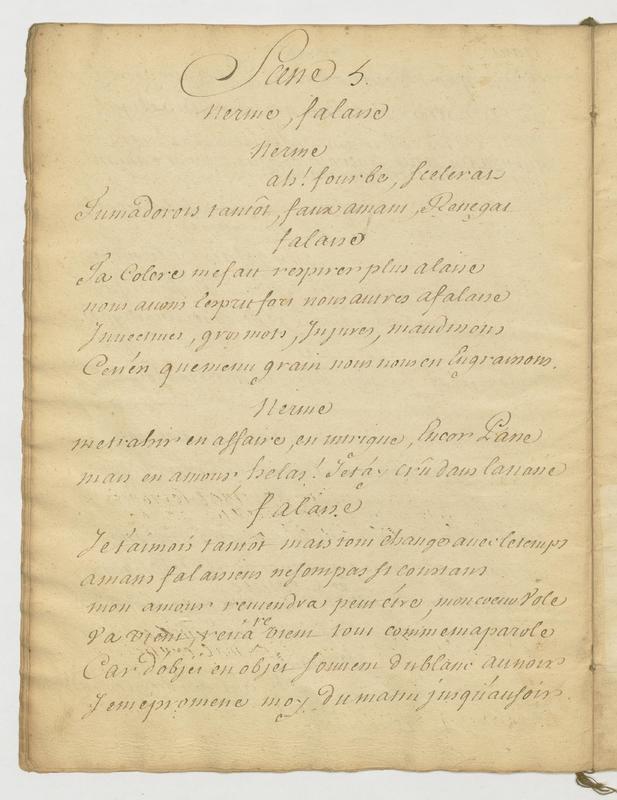 Scene 5.
Nerine, falaise
Nerine
ah! fourbe, scelerat
Tumadorois tantôt, faux amant, Renegat
falaise
Ta Colere mefait respirer plus alaise
nous avons l'esprit fort nous autres afalaise
Invectives, gros mots, Injures, maudissons
Cen'en quemenu grain nous nous en Engraissons.
Nerine
metrahir en affaire, en intrigue, Encor Passe
mais en amour helas! Jet'ay crû dans lanasse
falaise
Je t'aimois tantôt mais tout change avec letemps
amans falaisiens nesompas si constans
mon amour reviendra peut être, moncoeur Vole
Va vient, reva revient tout commemaparole
Car dobjet en objet souvent dublanc aunoir
Jemepromene moy dumatin jusqu'ausoir.